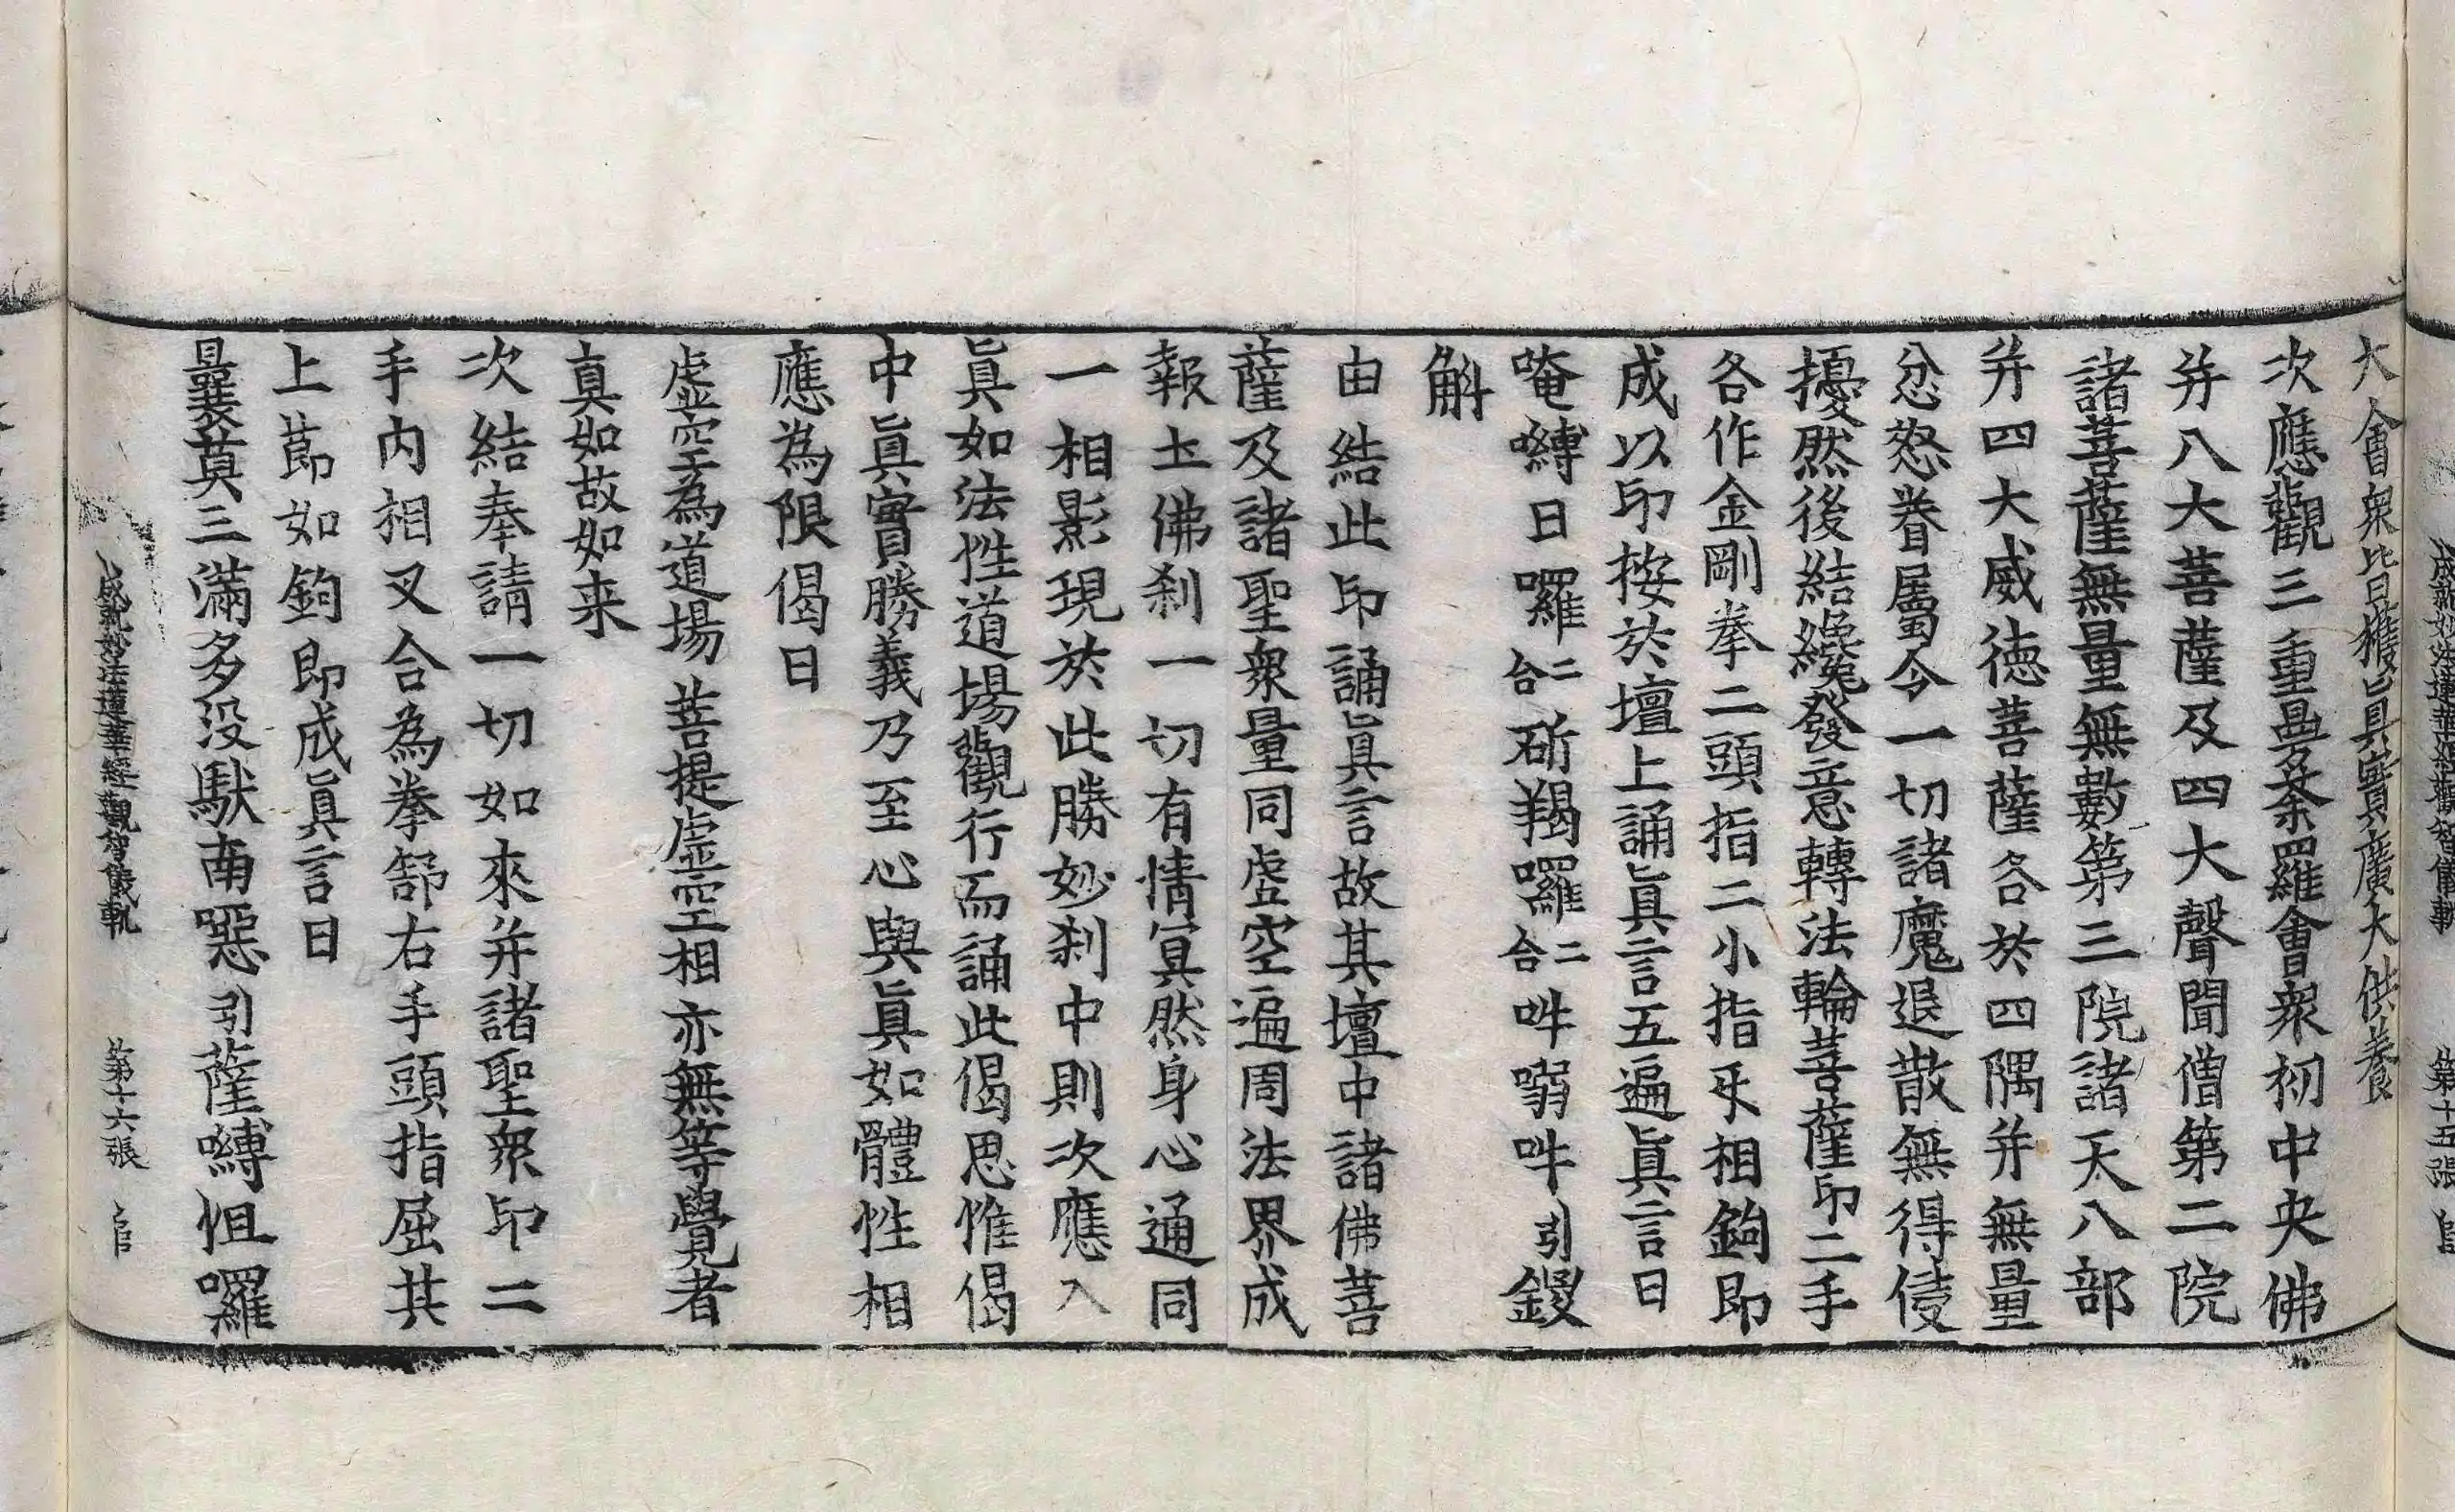 成就妙法蓮華經觀智儀軌 第十五張
大會衆皆獲皆具實廣大供養
次應觀三重曼荼羅會衆初中央佛
并八大菩薩及四大聲聞僧第二院
諸菩薩無量無數第三院諸天八部
并四大威德菩薩各於四隅并無量
忿怒眷屬令一切諸魔退散無得侵
擾然後結纔發意轉法輪菩薩印二手
各作金剛拳二頭指二小指㸦相鉤即
成以印按於壇上誦眞言五遍眞言曰
唵嚩日囉二合斫羯囉二合吽弱吽引鑁
斛
由結此印誦眞言故其壇中諸佛菩
薩及諸聖衆量同虛空遍周法界成
報土佛刹一切有情冥然身心通同
一相影現於此勝妙刹中則次應入
眞如法性道場觀行而誦此偈思惟偈
中眞實勝義乃至心與眞如體性相
應為限偈曰
虛空為道場 菩提虛空相 亦無等覺者
真如故如来
次結奉請一切如來并諸聖衆印二
手內相叉合為拳䜿右手頭指屈其
上莭如鉤即成眞言曰
曩莫三滿多没馱南噁引薩嚩怛囉
成就妙法蓮華經觀智儀軌 第十六張